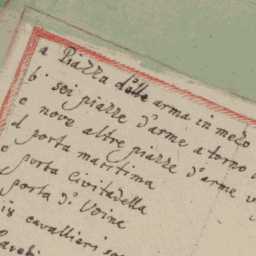 a Piazza della arma in mezo
b sei piazze d'arme a torno
c nove altre piazze d'arme
d porta maritima
e porta Civitadella
porta d'Udine
cavallieri